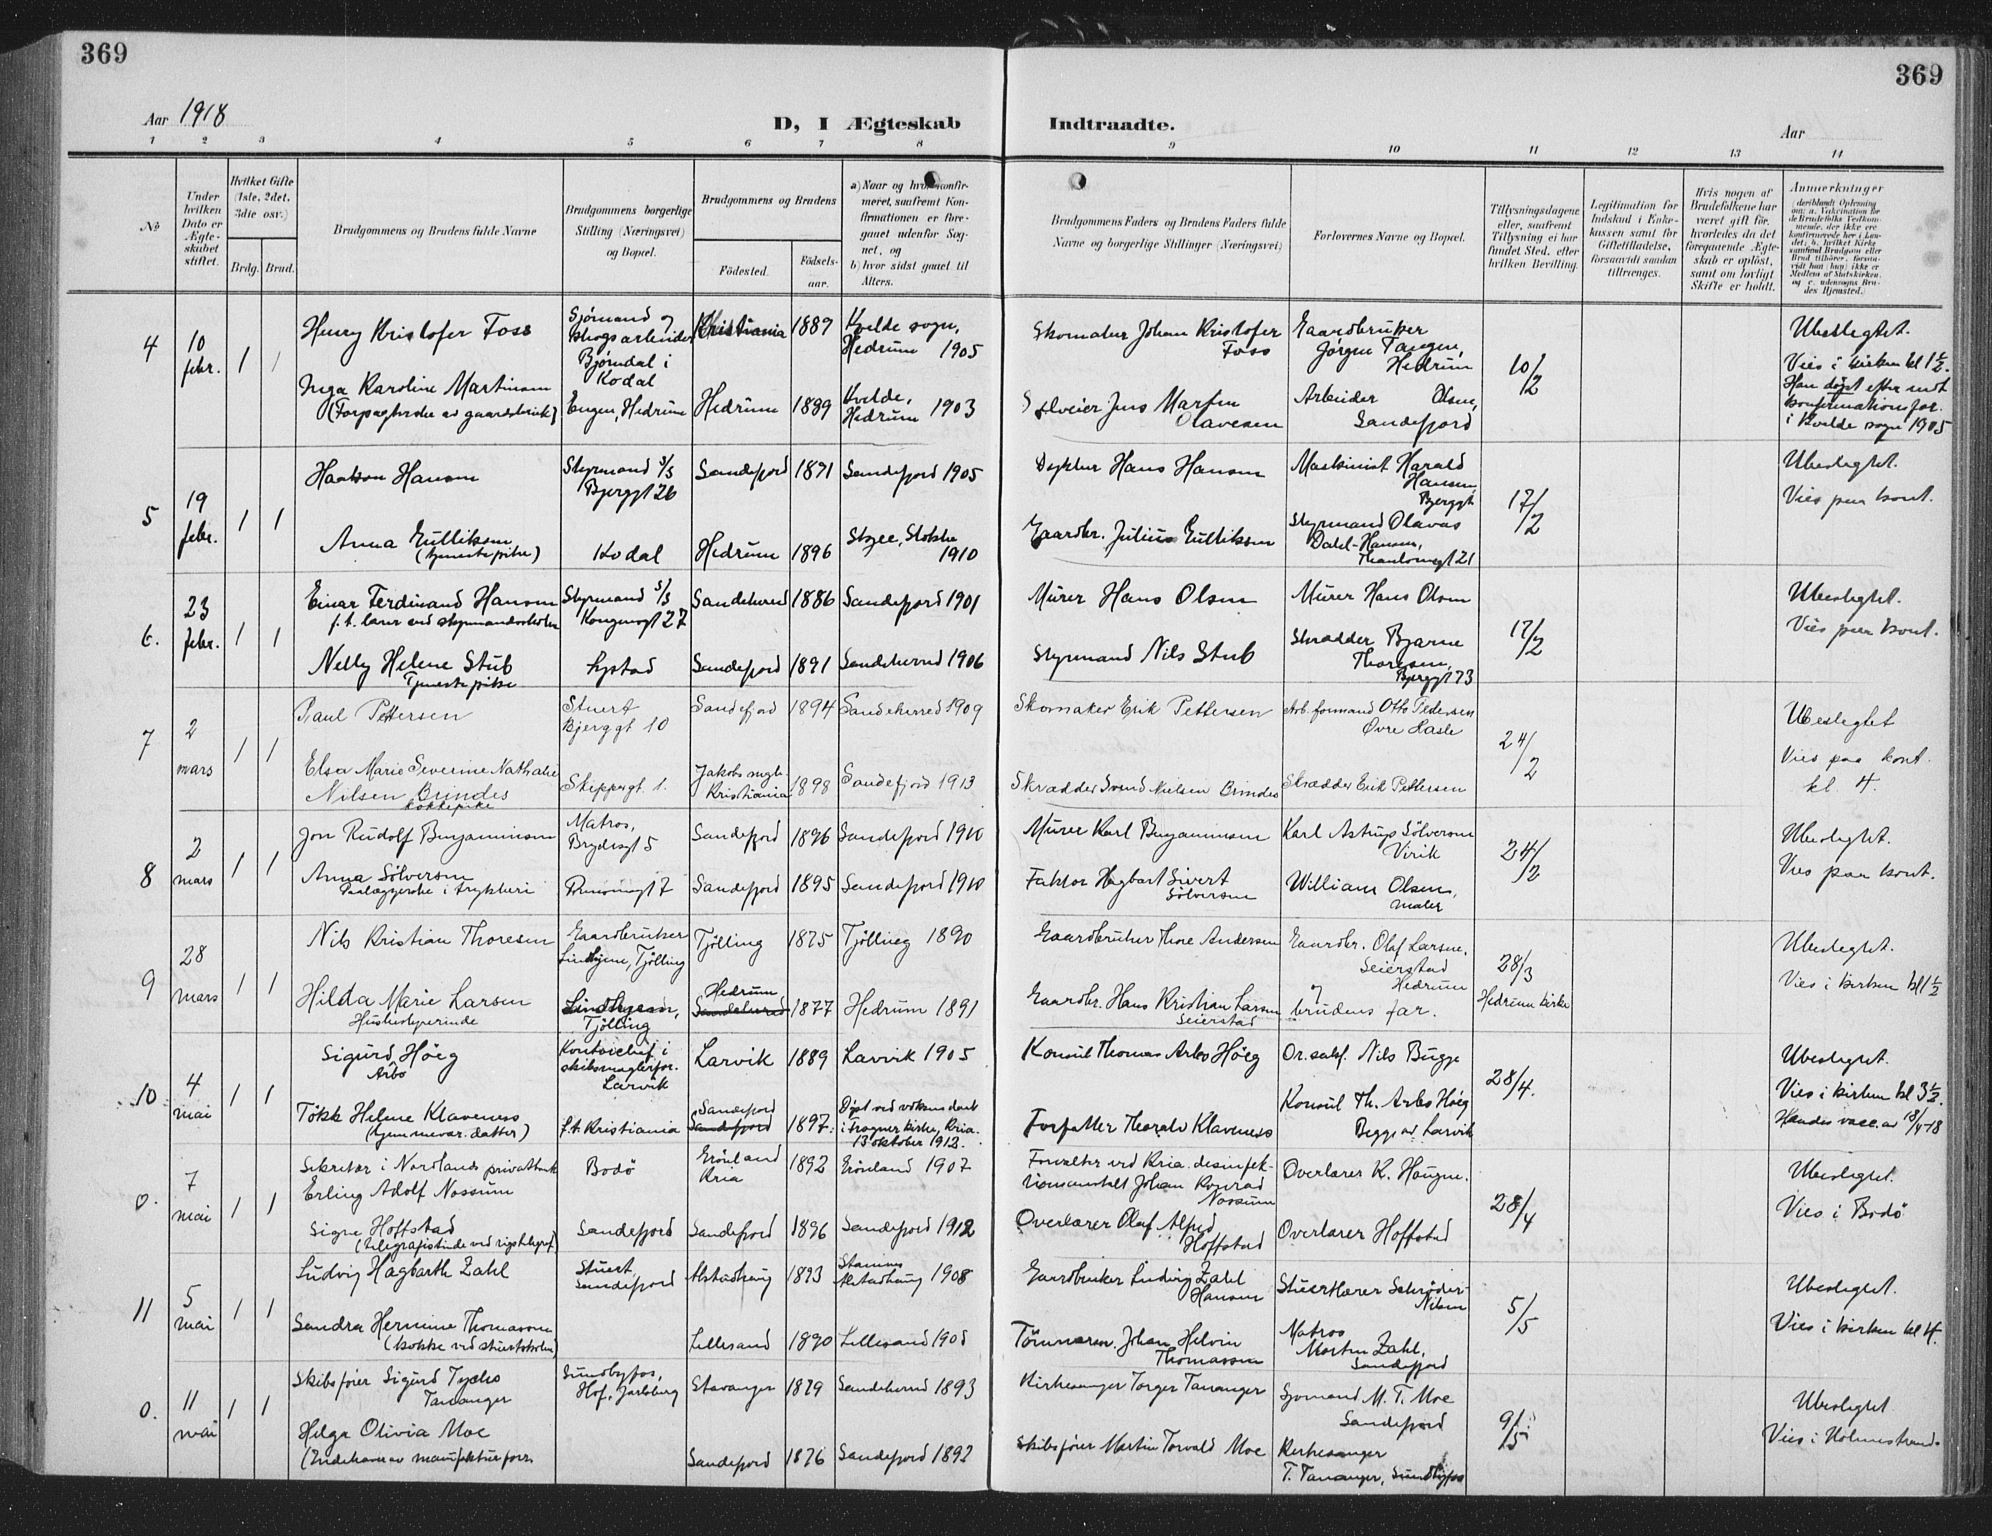 369
369
Aar 1918
D, I Ægteskab Indtraadte.
Aar
1 2 3 4 5 6 7 8 9 10 11 12 13 14
No
Under hvilken Dato er Ægteskabet stiftet.
Hvilket Gifte (1ste, 2det, 3die osv.)
Brdg. Brud.
Brudgommens og Brudens fulde Navne
Brudgommens borgerlige Stilling (Næringsvei) og Bopæl.
Brudgommens og Brudens
Fødested.
Fødselsaar.
a) Naar og hvor konfirmeret, saafremt Konfirmationen er foregaaet udenfor Sognet, og
b) hvor sidst gaaet til Alters.
Brudgommens Faders og Brudens Faders fulde Navne og borgerlige Stillinger (Næringsvei)
Forlovernes Navne og Bopæl.
Tillysningsdagene eller, saafremt Tillysning ei har fundet Sted, efter hvilken Bevilling.
Legitimation for Indskud i Enkekassen samt for Giftetilladelse, forsaavidt saadan tiltrænges.
Hvis nogen af Brudefolkene har været gift før, hvorledes da det foregaaende Ægteskab er opløst, samt om lovligt Skifte er holdt.
Anmerkninger
4
10 febr.
1 1
Henry Kristofer Foss
Sjømand og skogsarbeider
Bjørndal i Kodal
Kristiania 1889
Kvelde sogn, Hedrum 1905
Skomaker Johan Kristofer Foss
Gaardbruker Jørgen Tangen, Hedrum
10/2
Ubeslegtet.
Vies i kirken kl 1½.
Han døpt efter
konfirmationsfor.
i Kvelde sogn 1905
Inga Karoline Martinsen
Eugen, Hedrum
Hedrum 1889
Kvelde, Hedrum 1903
Jens Martin Olavesen
Arbeider Olsen, Sandefjord
5
19 febr.
1 1
Haakon Hansen
Styrmand
Bjerggt 26
Sandefjord 1891
Sandefjord 1905
Hans Hansen
Maskinist Harald Hansen, Bjerggt.
17/2
Ubeslegtet.
Vies paa kont.
Anna Gulliksen
(tjenestepike)
Kodal
Hedrum 1896
Stokke 1910
Gaardbr. Julius Gulliksen
Styrmand Olavas Dahl-Hansen,
6.
23 febr.
1 1
Einar Ferdinand Hansen
Styrmand
Kongensgt 27
Sandeherred 1886
Sandefjord 1901
Murer Hans Olsen
Murer Hans Olsen
17/2
Ubeslegtet.
Vies paa kont.
Nelly Helene Stub
Tjenestepike
Nystad
Sandefjord 1891
Sandeherred 1906
Styrmand Nils Stub
Skrædder Bjarne Thoresen, Bjerggt 73
7
2 mars
1 1
Paul Pettersen
Stuert
Bjerggt 10
Sandefjord 1894
Sandeherred 1909
Skomaker Erik Pettersen
Arb. formand Otto Pedersen
Øvre Hasle
24/2
Ubeslegtet
Vies paa kont.
kl. 4.
Elsa Marie Severine Nathalie
Nilsen Brindes
kokkepike
Skippergt. 1.
Kristiania 1898
Sandefjord 1913
Skrædder Svend Nielsen Brindes
Skrædder Erik Pettersen
8
2 mars
1 1
Jon Rudolf Benjaminsen
Matros,
Brydesgt 5
Sandefjord 1896
Sandefjord 1910
Murer Karl Benjaminsen
Karl Astrup Sölversen
Virik
24/2
Ubeslegtet.
Vies paa kont.
Anna Sölversen
Paalæggerske i trykkeri
Sandefjord 1895
Sandefjord 1910
Faktor Hagbart Sivert Sölversen
William Olsen, maler
9
28 mars
1 1
Nils Kristian Thoresen
Gaardbruker
Lindhjem, Tjølling
Tjölling 1875
Tjölling 1890
Gaardbruker Thore Andersen
Gaardbr. Olaf Larsen,
Seierstad
Hedrum
28/3
Hedrum kirke
Ubeslegtet.
Vies i kirken kl 1½
Hilda Marie Larsen
Husbestyrerinde
Lindhjem,
Tjölling
Hedrum
Sandeherred 1877
Hedrum 1891
Gaardbr. Hans Kristian Larsen
Seierstad
og brudens far.
10
4 mai
1 1
Sigurd Höeg
Arbo
Kontorchef i skibsmæglerfor.
Larvik
Larvik 1889
Larvik 1905
Konsul Thomas Arbo Höeg
Or.sakf. Nils Bugge
28/4.
Ubeslegtet.
Vies i kirken kl 3½.
Hendes vacc.av 18/4-18
Tökk Helene Klaveness
(hjemmevær. datter)
f.t. Kristiania
Sandefjord
Sandefjord 1897.
Døpt ved voksen daab
i Frogner kirke, Kria.
13 oktober 1912.
Forfatter Thoralv Klaveness
Konsul Th. Arbo Höeg
Begge av Larvik
0.
7 mai
1 1
Sekretær i Nordlands privatbank
Erling Adolf Nossum
Bodö
Grönland
Kria 1892
Grönland 1907
Forvalter ved Kria. desinfektionsanstalt Johan Konrad Nossum
Overlærer K. Haugen.
28/4
Ubeslegtet.
Vies i Bodö
Signe Hoffstad
(telegrafistinde ved rigstelegraf)
Sandefjord
Sandefjord 1896
Sandefjord 1912
Overlærer Olaf Alfred Hoffstad
Overlærer Hoffstad
11
5 mai
1 1
Ludvig Hagbarth Zahl
Stuert
Sandefjord
Alstadhaug 1893
Stamnes
Alstadhaug 1908
Gaardbruker Ludvig Zahl Hansen
Stuertlærer Schrøder-Nilsen
5/5
Ubeslegtet.
Vies i kirken kl 4.
Sandra Hermine Thomassen
(kokke ved stuertskolen)
Lillesand 1890
Lillesand 1905
Tömmerm. Johan Helvin Thomassen
Matros
Morten Zahl,
Sandefjord
0.
11 mai
1 1
Skibsfører Sigurd
Tananger
Sundbyfos,
Hof, Jarlsberg
Stavanger 1879
Sandeherred 1893
Kirkesanger Torger Tananger
Sjømand M. T. Moe
Sandefjord
9/5
Ubeslegtet
Vies i Holmestrand.
Helga Olivia Moe
(Indehaver av manufakturforr.
Sandefjord 1876
Sandefjord 1892
Skibsfører Martin Torvald Moe
Kirkesanger
T. Tananger, Sundbyfos